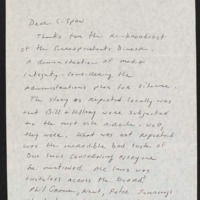 Dear C-Span
Thanks for the re-broadcast
of the Correspondents Dinner.
A demonstration of media
integrity - considering the
administrations plea for silence.
The story as reported locally was
that Bill & Hillary were subjected
to the most vile ridicule. Well,
they were. What was not reported
was the incredible bad taste of
Don Imus concerning everyone
he mentioned. Mr Imus was
tasteless across the board.
Phil Gramm, Newt, Peter Jennings